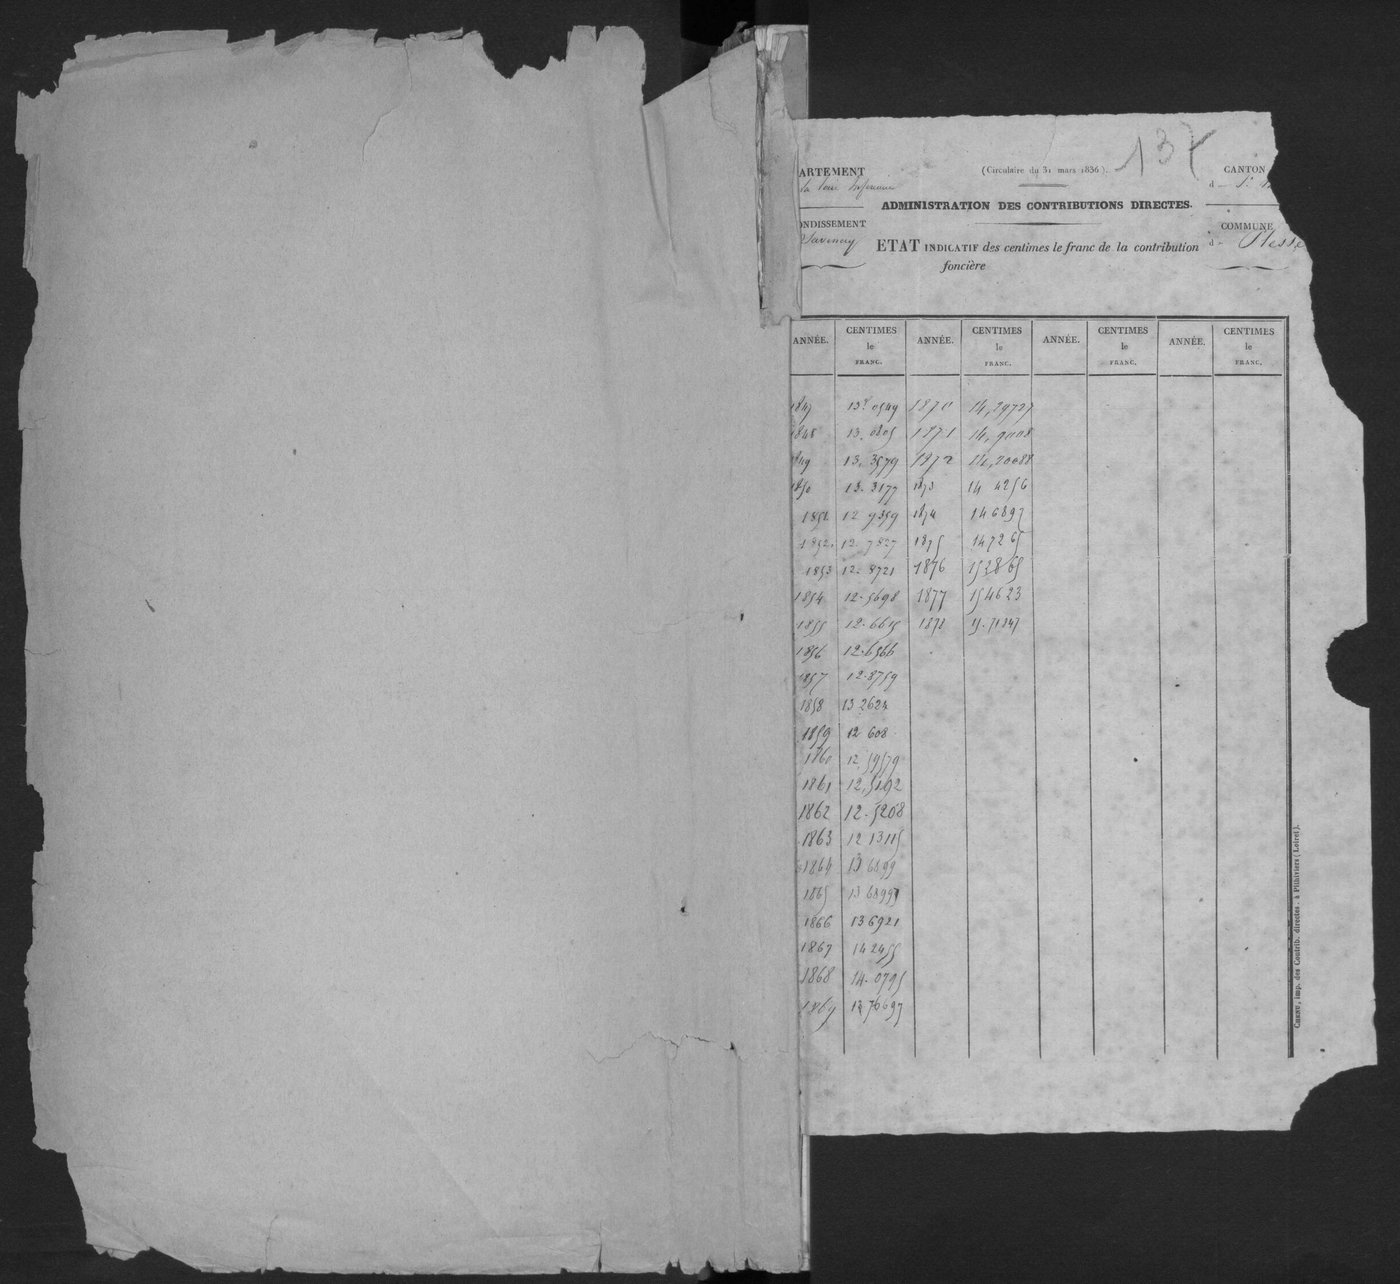 137
ARTEMENT
la Loire Inférieure
ONDISSEMENT
Savenay
(Circulaire du 31 mars 1836).
ADMINISTRATION DES CONTRIBUTIONS DIRECTES.
ETAT INDICATIF des centimes le franc de la contribution
foncière
CANTON
d
COMMUNE
d Plessé
ANNÉE. CENTIMES le FRANC. ANNÉE. CENTIMES le FRANC. ANNÉE. CENTIMES le FRANC. ANNÉE. CENTIMES le FRANC.
1847 13.0549 1870 14,29727
1848 13.0805 1871 14,9008
1849 13.3579 1872
1850 13.3177 1873 14 4256
1851 12 9359 1874 146897
1852 12.7827 1875 147265
1853 12.8721 1876 152865
1854 12.5698 1877 154623
1855 12.6615 1878 15.71847
1856 12.6566
1857 12.8759
1858 13 2624
1859 12 608
1860 12,59579
1861 12,5192
1862 12.5208
1863 12 13115
1864 13 6899
1865 13 68997
1866 136921
1867 14 2455
1868 14.0795
1869 13 70697
CHENU, imp. des Contrib. directes, à Pithiviers (Loiret).